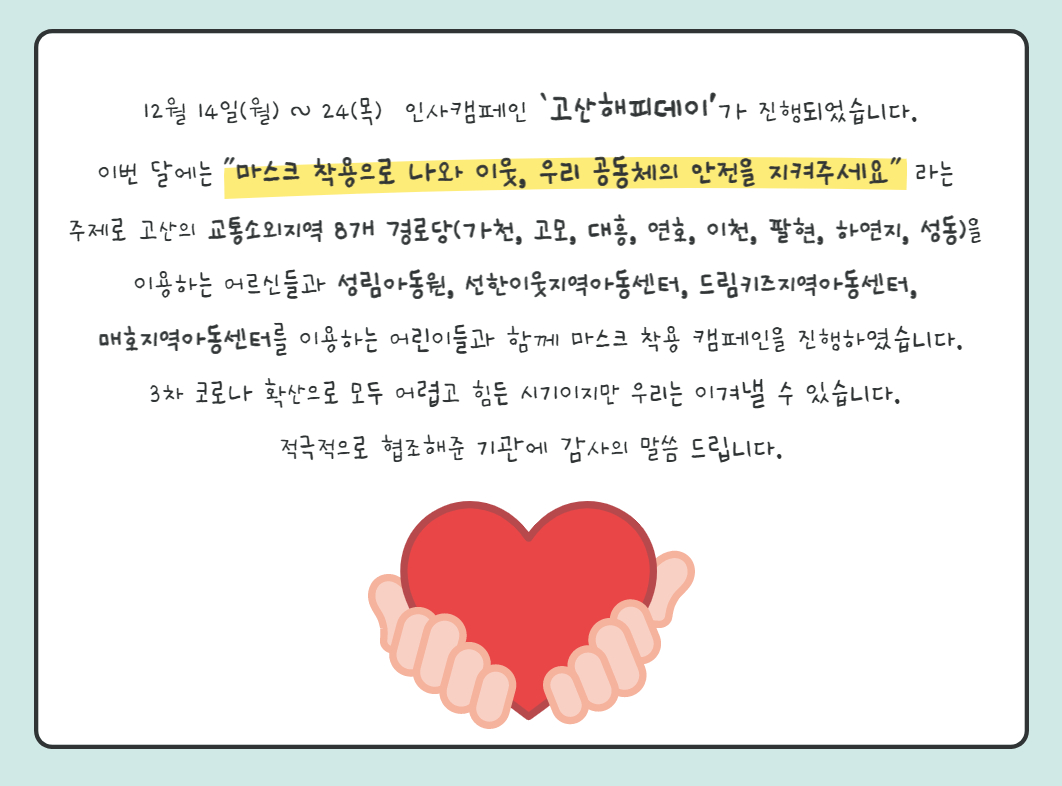 12월 14일(월) ~ 24(목) 인사캠페인 '고산해피데이'가 진행되었습니다.
이번 달에는 "마스크 착용으로 나와 이웃, 우리 공동체의 안전을 지켜주세요" 라는
주제로 고산의 교통소외지역 8개 경로당(가천, 고모, 대흥, 연호, 이천, 팔현, 하연지, 성동)을
이용하는 어르신들과 성림아동원, 선한이웃지역아동센터, 드림키즈지역아동센터,
매호지역아동센터를 이용하는 어린이들과 함께 마스크 착용 캠페인을 진행하였습니다.
3차 코로나 확산으로 모두 어렵고 힘든 시기이지만 우리는 이겨낼 수 있습니다.
적극적으로 협조해준 기관에 감사의 말씀 드립니다.